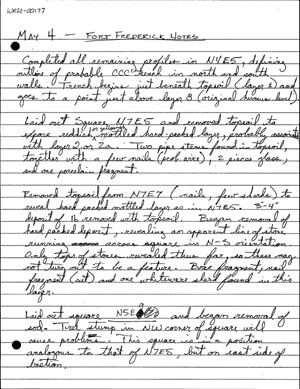 WA26-00177
MAY 4 — FORT FREDERICK NOTES
Completed all remaining profiles in N4E5, defining
outline of probable CCC trench in north and south
walls. Trench begins just beneath topsoil (layer 1) and
goes to a point just above layer 3 (original humus level).
Laid out Square N7E5 and removed topsoil to
expose reddish, mottled hard-packed layer, probably associated
with layer 2 or 2a. Two pipe stems found in topsoil,
together with a few nails (prob. wire), 2 pieces glass,
and one porcelain fragment.
Removed topsoil from N7E7 (nails, few sherds) to
reveal hard packed mottled layer as in N7E5. 3-4"
deposit of 1b removed with topsoil. Began removal of
hard packed deposit, revealing an apparent line of stone
running across square in N-S orientation.
Only tops of stones revealed thus far, so these may
not turn out to be a feature. Bone fragment, nail
fragment (cut) and one whiteware sherd found in this
layer.
Laid out square N5E and began removal of
sod. Tree stump in NW corner of square will
cause problems. This square is in a position
analogous to that of N7E5, but on east side of